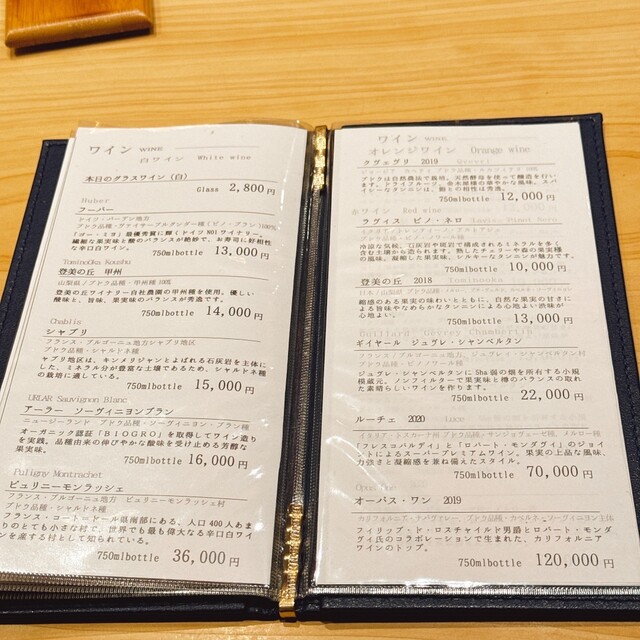 ワイン WINE
白ワイン White wine
本日のグラスワイン（白）
Glass 2,800円
Huber
フーバー
ドイツ・バーデン地方
ブドウ品種・ヴァイサーブルグンダー種（ピノ・グラン）100%
「ゴー・ミヨ」最優秀賞に輝くドイツNO1ワイナリー。
繊細な果実味と酸のバランスが絶妙で、お寿司に好相性
な辛口白ワイン。
750mlbottle 13,000円
TominoOka Koushu
登美の丘 甲州
山梨県／ブドウ品種・甲州種 100%
登美の丘ワイナリー自社農園の甲州種を使用。優しい
酸味と、旨味、果実味のバランスが秀逸です。
750mlbottle 14,000円
Chablis
シャブリ
フランス・ブルゴーニュ地方シャブリ地区
ブドウ品種・シャルドネ種
ャブリ地区は、キンメリジャンとよばれる石灰岩を主体に
した、ミネラル分が豊富な土壌であるため、シャルドネ種
の栽培に適している。
750mlbottle 15,000円
URLAR Sauvignon Blanc
アーラー ソーヴィニヨンブラン
ニュージーランド ブドウ品種・ソーヴィニヨン・ブラン種
オーガニック認証「BIOGRO」を取得してワイン造り
を実践。品種由来の伸びやかな酸味を受け止める芳醇な
果実味。
750mlbottle 16,000円
Puligny Montrachet
ピュリニーモンラッシェ
フランス・ブルゴーニュ地方 ピュリニーモンラッシェ村
ブドウ品種・シャルドネ種
フランス・コートドール県南部にある、人口400人あま
りのとても小さな村で、世界でも最も偉大なる辛口白ワイ
ンを産する村として知られている。
750mlbottle 36,000円
ワイン WINE
オレンジワイン Orange wine
クヴェヴリ 2019 Qvevri
ブドウは自然農法で栽培。天然酵母を使って醸造を行い
ます。ドライフルーツ、金木犀様の華やかな風味。スパ
イシーなタンニンは、鶏とも相性は抜群。
750mlbottle 12,000円
赤ワイン Red wine
ラヴィス ピノ・ネロ Lavis Pinot Nero
冷涼な気候、石灰岩や苦灰岩で構成されるミネラルを多く
含む土壌から造られます。熟したチェリーや森の果実様
の風味。凝縮した果実味、シルキーなタンニンが魅力です。
750mlbottle 10,000円
登美の丘 2018 Tominooka
緻感のある果実の味わいとともに、自然な果実の甘さによ
る旨味やなめらかなタンニンによる心地よい渋味が
心地よい。
750mlbottle 13,000円
Guillard Gevrey Chambertin
ギイヤール ジュヴレ・シャンベルタン
フランス/ブルゴーニュ地方、ジュヴレ・シャンベルタン村
ブドウ品種・ピノノワール種
ジュヴレ・シャンベルタンに5ha弱の畑を所有する小規
模蔵元。ノンフィルターで果実味と樽のバランスの取れ
た素晴らしいワインを生む。
750mlbottle 22,000円
ルーチェ 2020 Luce
イタリア・トスカーナ州 ブドウ品種・サンジョヴェーゼ種、メルロー種
「フレスコバルディ」と「ロバート・モンダヴィ」のジョイ
ントによるスーパープレミアムワイン。果実の上品な風味、
力強さと凝縮感を兼ね備えたスタイル。
750mlbottle 70,000円
Opus One
オーパス・ワン 2019
カリフォルニア・ナパヴァレー、ブドウ品種・カベルネ・ソーヴィニヨン主体
フィリップ・ド・ロスチャイルド男爵とロバート・モンダ
ヴィ氏のコラボレーションで生まれた、カリフォルニア
ワインのトップ。
750mlbottle 120,000円